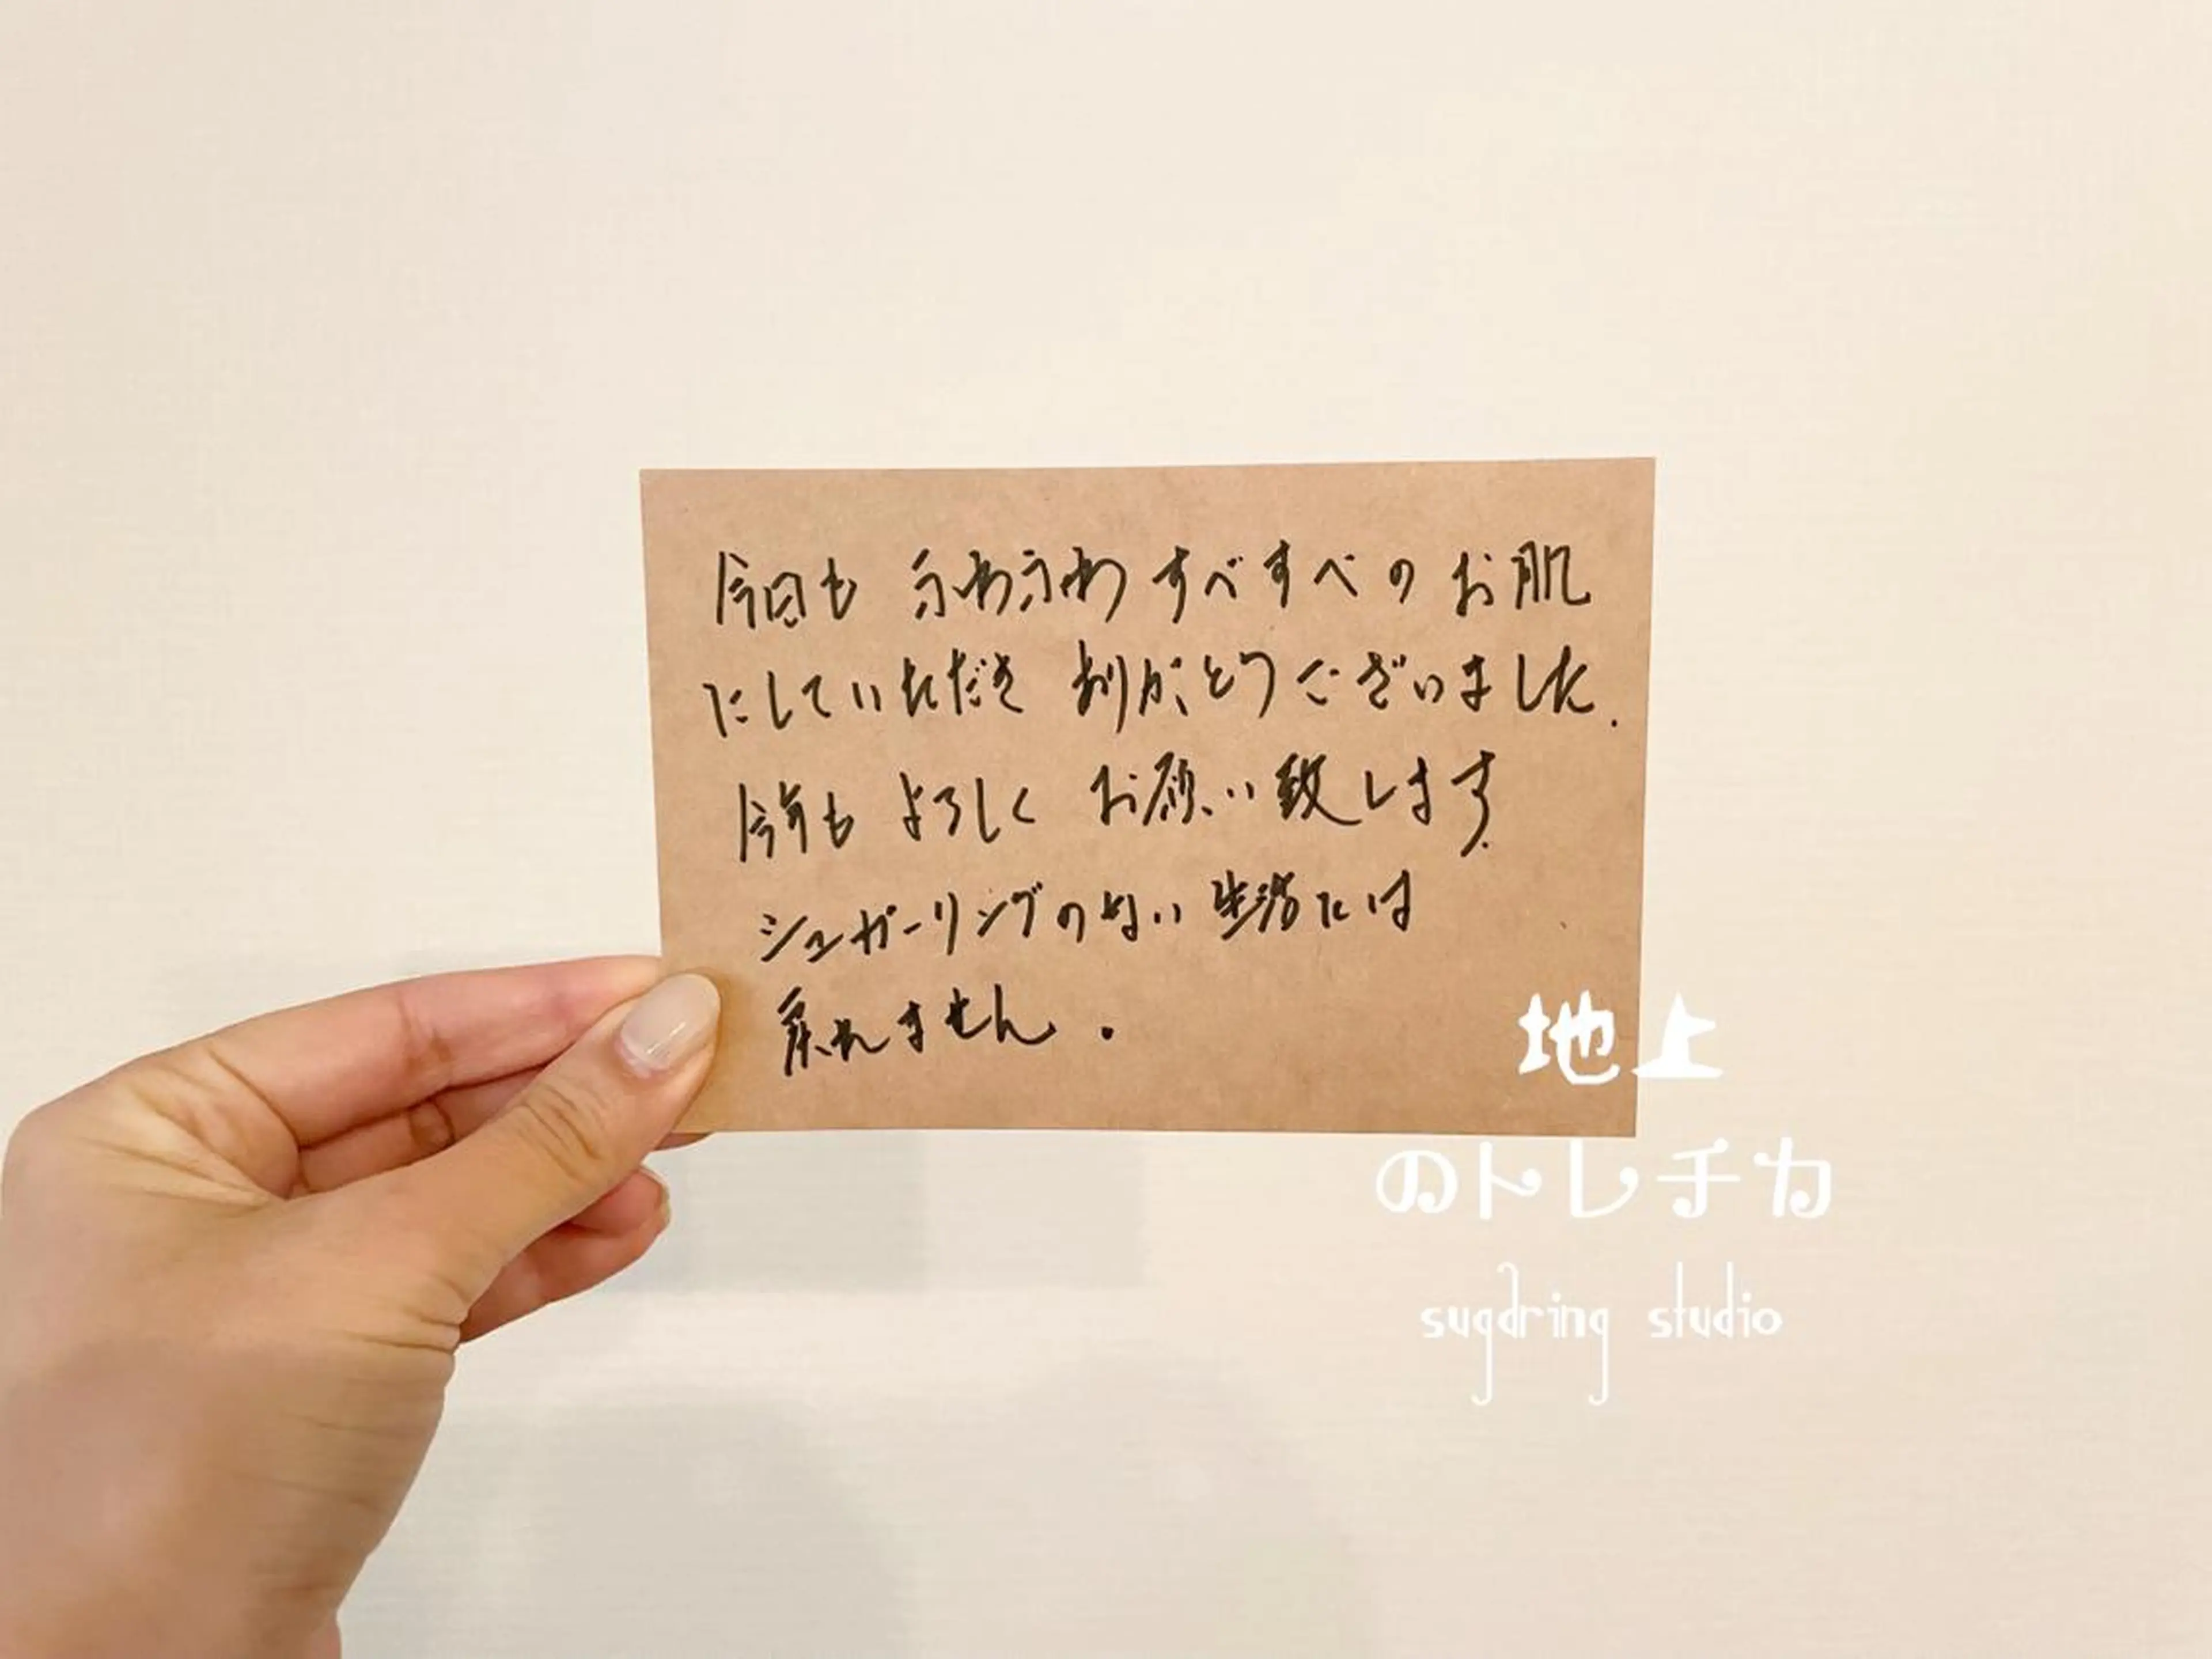 今日も ふわふわ すべすべの お肌
にしていただき ありがとうございました.
今年も よろしく お願い致します.
シュガーリングのない生活には
戻れません.
地上
のトレチカ
sugaring studio